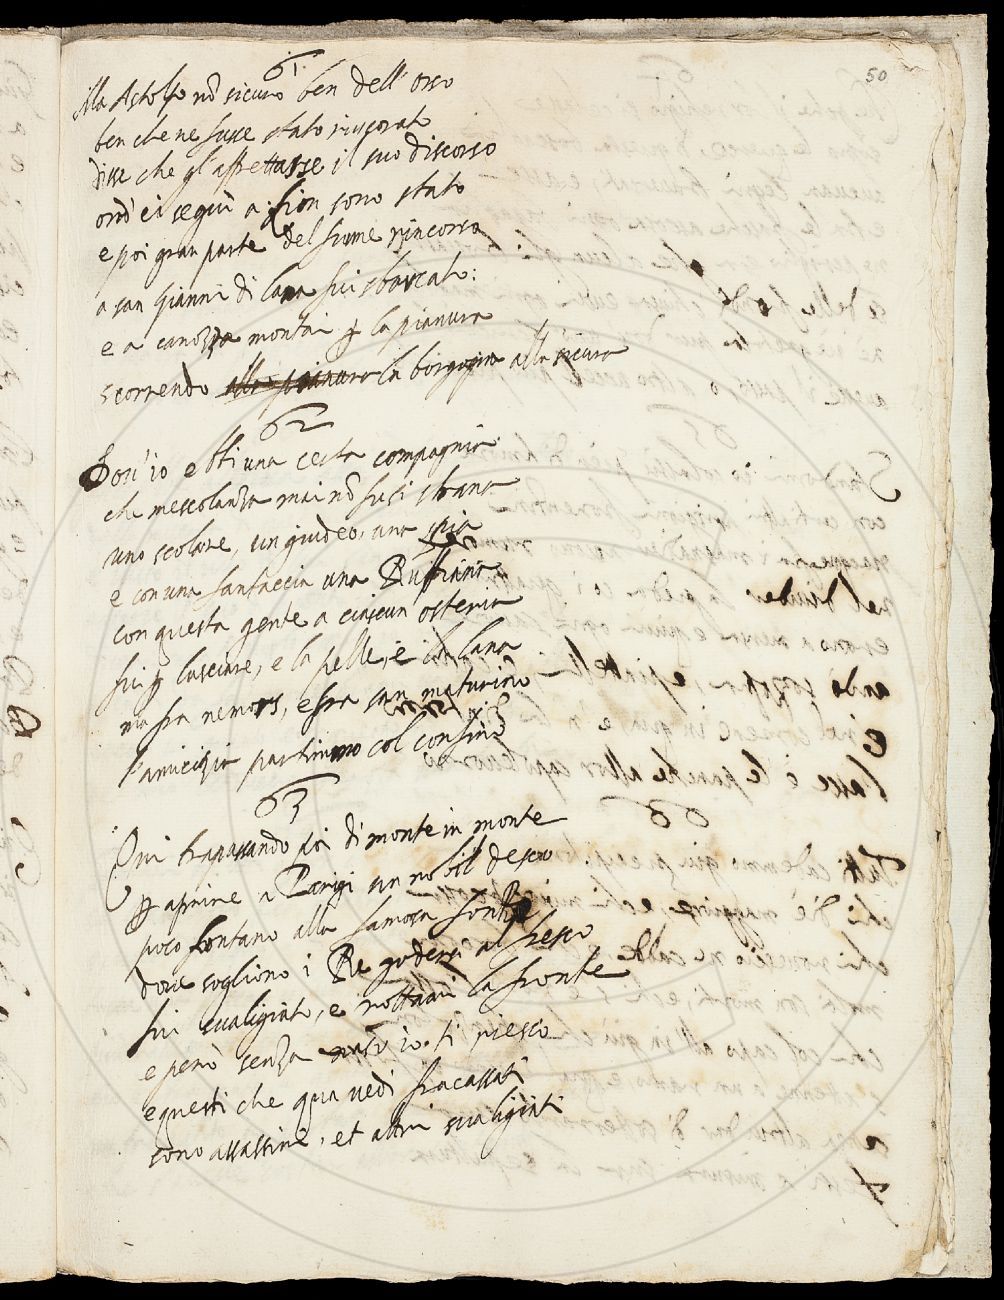 50
61.
Ma Astolfo nõ sicuro ben dell'orso
ben che ne fusse stato rincorato
disse che gl'aspettasse il suo discorso
ond'ei seguì a Lion sono stato
e poi gran parte del fiume rincorso
a san Gianni di lana fui sbarcato:
e a canozza montai p la pianura
scorrendo alla pianura la borgogna alla sicura
62
Dou'io ebbi una certa compagnia
che mescolanza mai nõ fu sì strana
uno scolare, un giudeo, una spia
e con una fantaccia una Ruffiana
con questa gente a ciascun osteria
fui p lasciare, e la pelle, e la lana
ma fra nemors, e fra san maturino
l'amicizia partimmo col confino
63
Qui trapassando poi di monte in monte
p aprire a Parigi un nobil desco
poco lontano alla famosa fonte
dove sogliono i Re godersi al fresco
fui svaligiato, e rottami la fronte
e però senza naso io ti riesco
e questi che qua vedi fracassati
sono assassini, et altri svaligiati